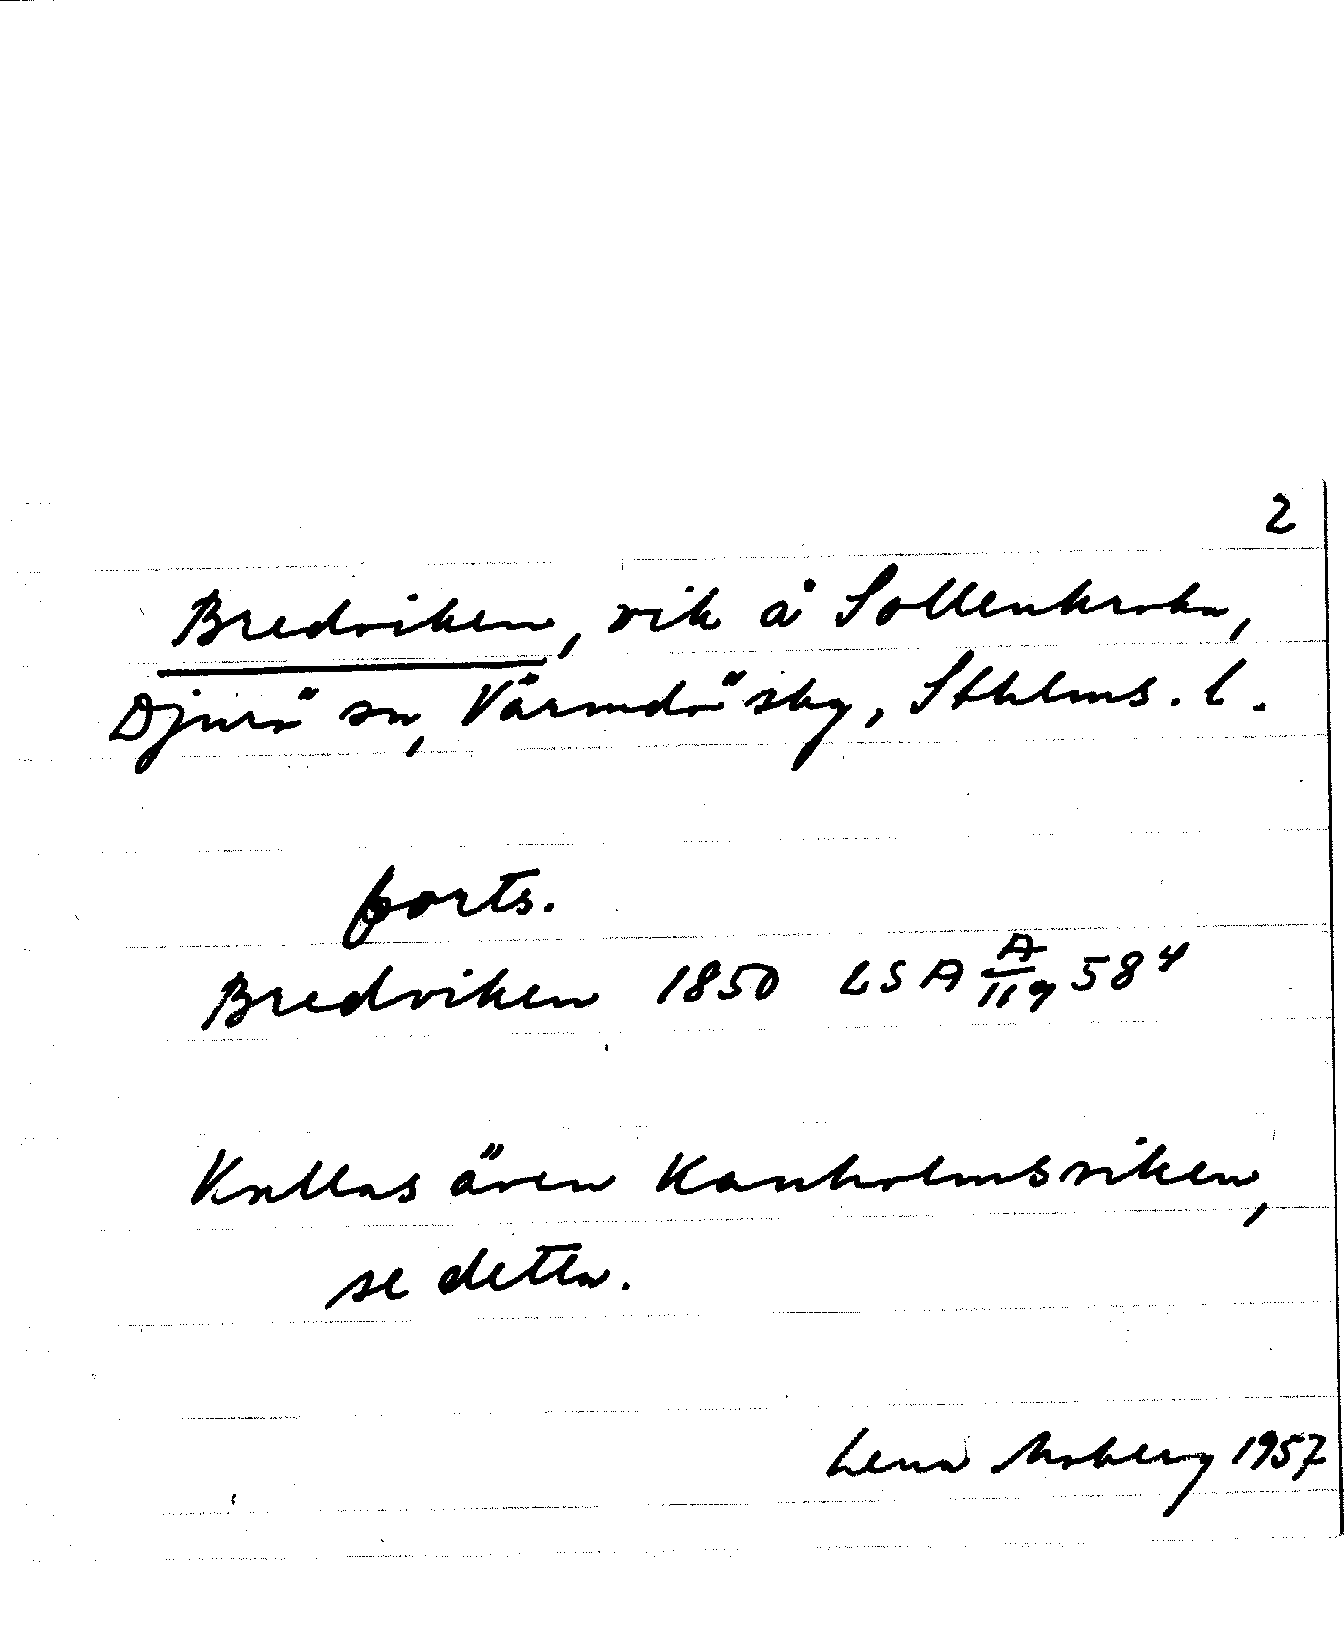 2
Bredviken, vik å Sollenkroka,
Djurö sn, Värmdö skg, Sthlms. l.
forts.
Bredviken 1850 LSA A/119 58⁴
Kallas även Kanholmsviken,
se detta.
Lena Moberg 1957